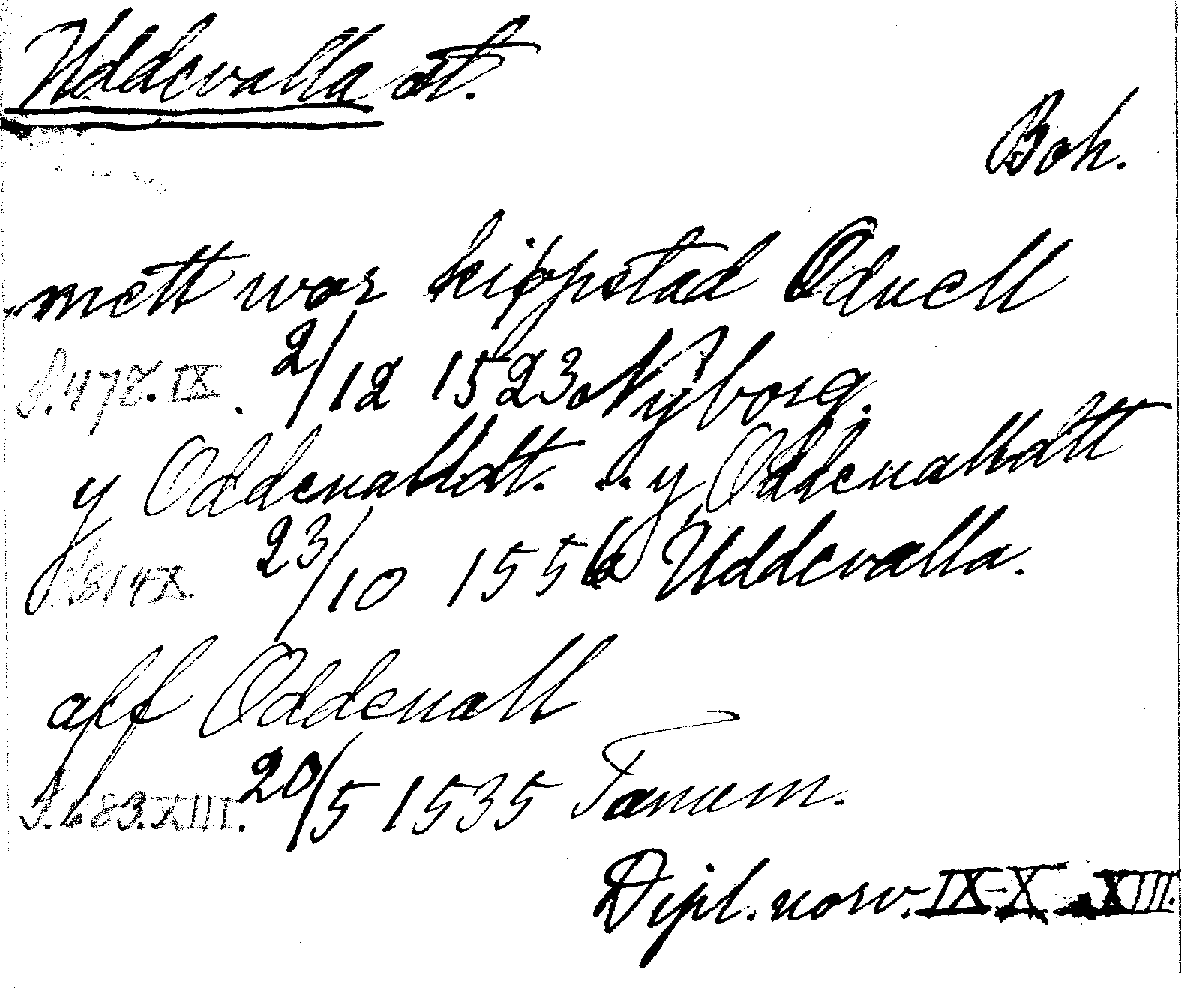 Uddevalla st.
Boh.
mett wor kippstad Oduell
S. 478. IX. 2/12 1523 Nyborg.
y Oddeualldt. s. y Oddeualldtt
S. 814 X. 23/10 1556 Uddevalla.
aff Oddeuall
S. 683. XIII. 20/5 1535 Tanum.
Dipl. norv. IX-X XIII.